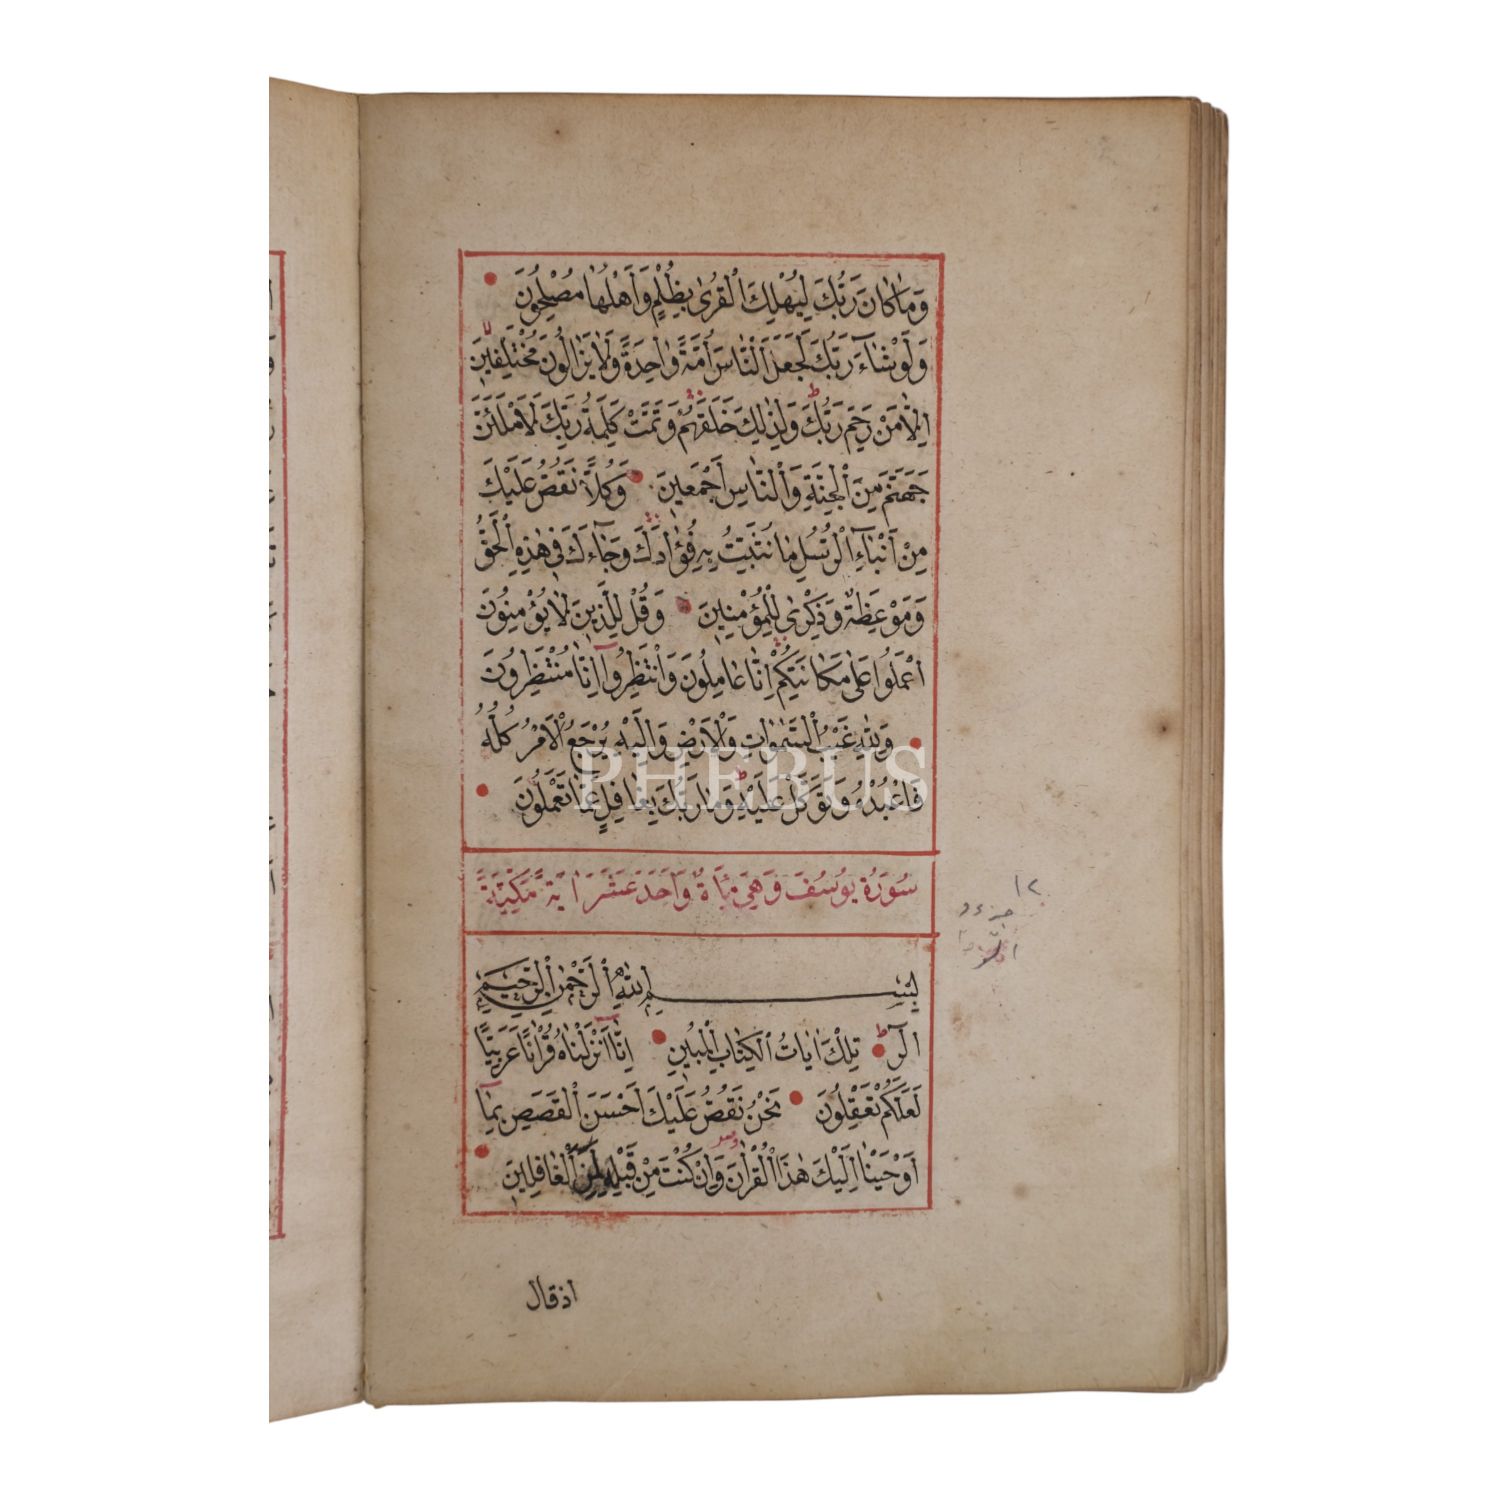 وَمَا كَانَ رَبُّكَ لِيُهْلِكَ ٱلْقُرٰى بِظُلْمٍ وَاَهْلُهَا مُصْلِحُونَ
وَلَوْ شَاۤءَ رَبُّكَ لَجَعَلَ ٱلنَّاسَ اُمَّةً وَاحِدَةً وَلَا يَزَالُونَ مُخْتَلِفِينَ
اِلَّا مَنْ رَحِمَ رَبُّكَ وَلِذٰلِكَ خَلَقَهُمْ وَتَمَّتْ كَلِمَةُ رَبِّكَ لَاَمْلَئَنَّ
جَهَنَّمَ مِنَ ٱلْجِنَّةِ وَٱلنَّاسِ اَجْمَعِينَ وَكُلًّا نَقُصُّ عَلَيْكَ
مِنْ اَنْبَاۤءِ ٱلرُّسُلِ مَا نُثَبِّتُ بِهِ فُؤَادَكَ وَجَاۤءَكَ فِى هٰذِهِ ٱلْحَقُّ
وَمَوْعِظَةٌ وَذِكْرٰى لِلْمُؤْمِنِينَ وَقُلْ لِلَّذِينَ لَا يُؤْمِنُونَ
اعْمَلُوا عَلٰى مَكَانَتِكُمْ اِنَّا عَامِلُونَ وَانْتَظِرُوا اِنَّا مُنْتَظِرُونَ
وَلِلّٰهِ غَيْبُ ٱلسَّمٰوَاتِ وَٱلْاَرْضِ وَاِلَيْهِ يُرْجَعُ ٱلْاَمْرُ كُلُّهُ
فَاعْبُدْهُ وَتَوَكَّلْ عَلَيْهِ وَمَا رَبُّكَ بِغَافِلٍ عَمَّا تَعْمَلُونَ
PHEBUS
سُورَةُ يُوسُفَ وَهِيَ مِأَةٌ وَاَحَدَ عَشَرَ اٰيَةً مَكِّيَّةً
بِسْمِ ٱللّٰهِ ٱلرَّحْمٰنِ ٱلرَّحِيمِ
الۤرٰ تِلْكَ اٰيَاتُ ٱلْكِتَابِ ٱلْمُبِينِ اِنَّاۤ اَنْزَلْنَاهُ قُرْاٰنًا عَرَبِيًّا
لَعَلَّكُمْ تَعْقِلُونَ نَحْنُ نَقُصُّ عَلَيْكَ اَحْسَنَ ٱلْقَصَصِ بِمَاۤ
اَوْحَيْنَا اِلَيْكَ هٰذَا ٱلْقُرْاٰنَ وَاِنْ كُنْتَ مِنْ قَبْلِهِ لَمِنَ ٱلْغَافِلِينَ
اذ قال
١٢